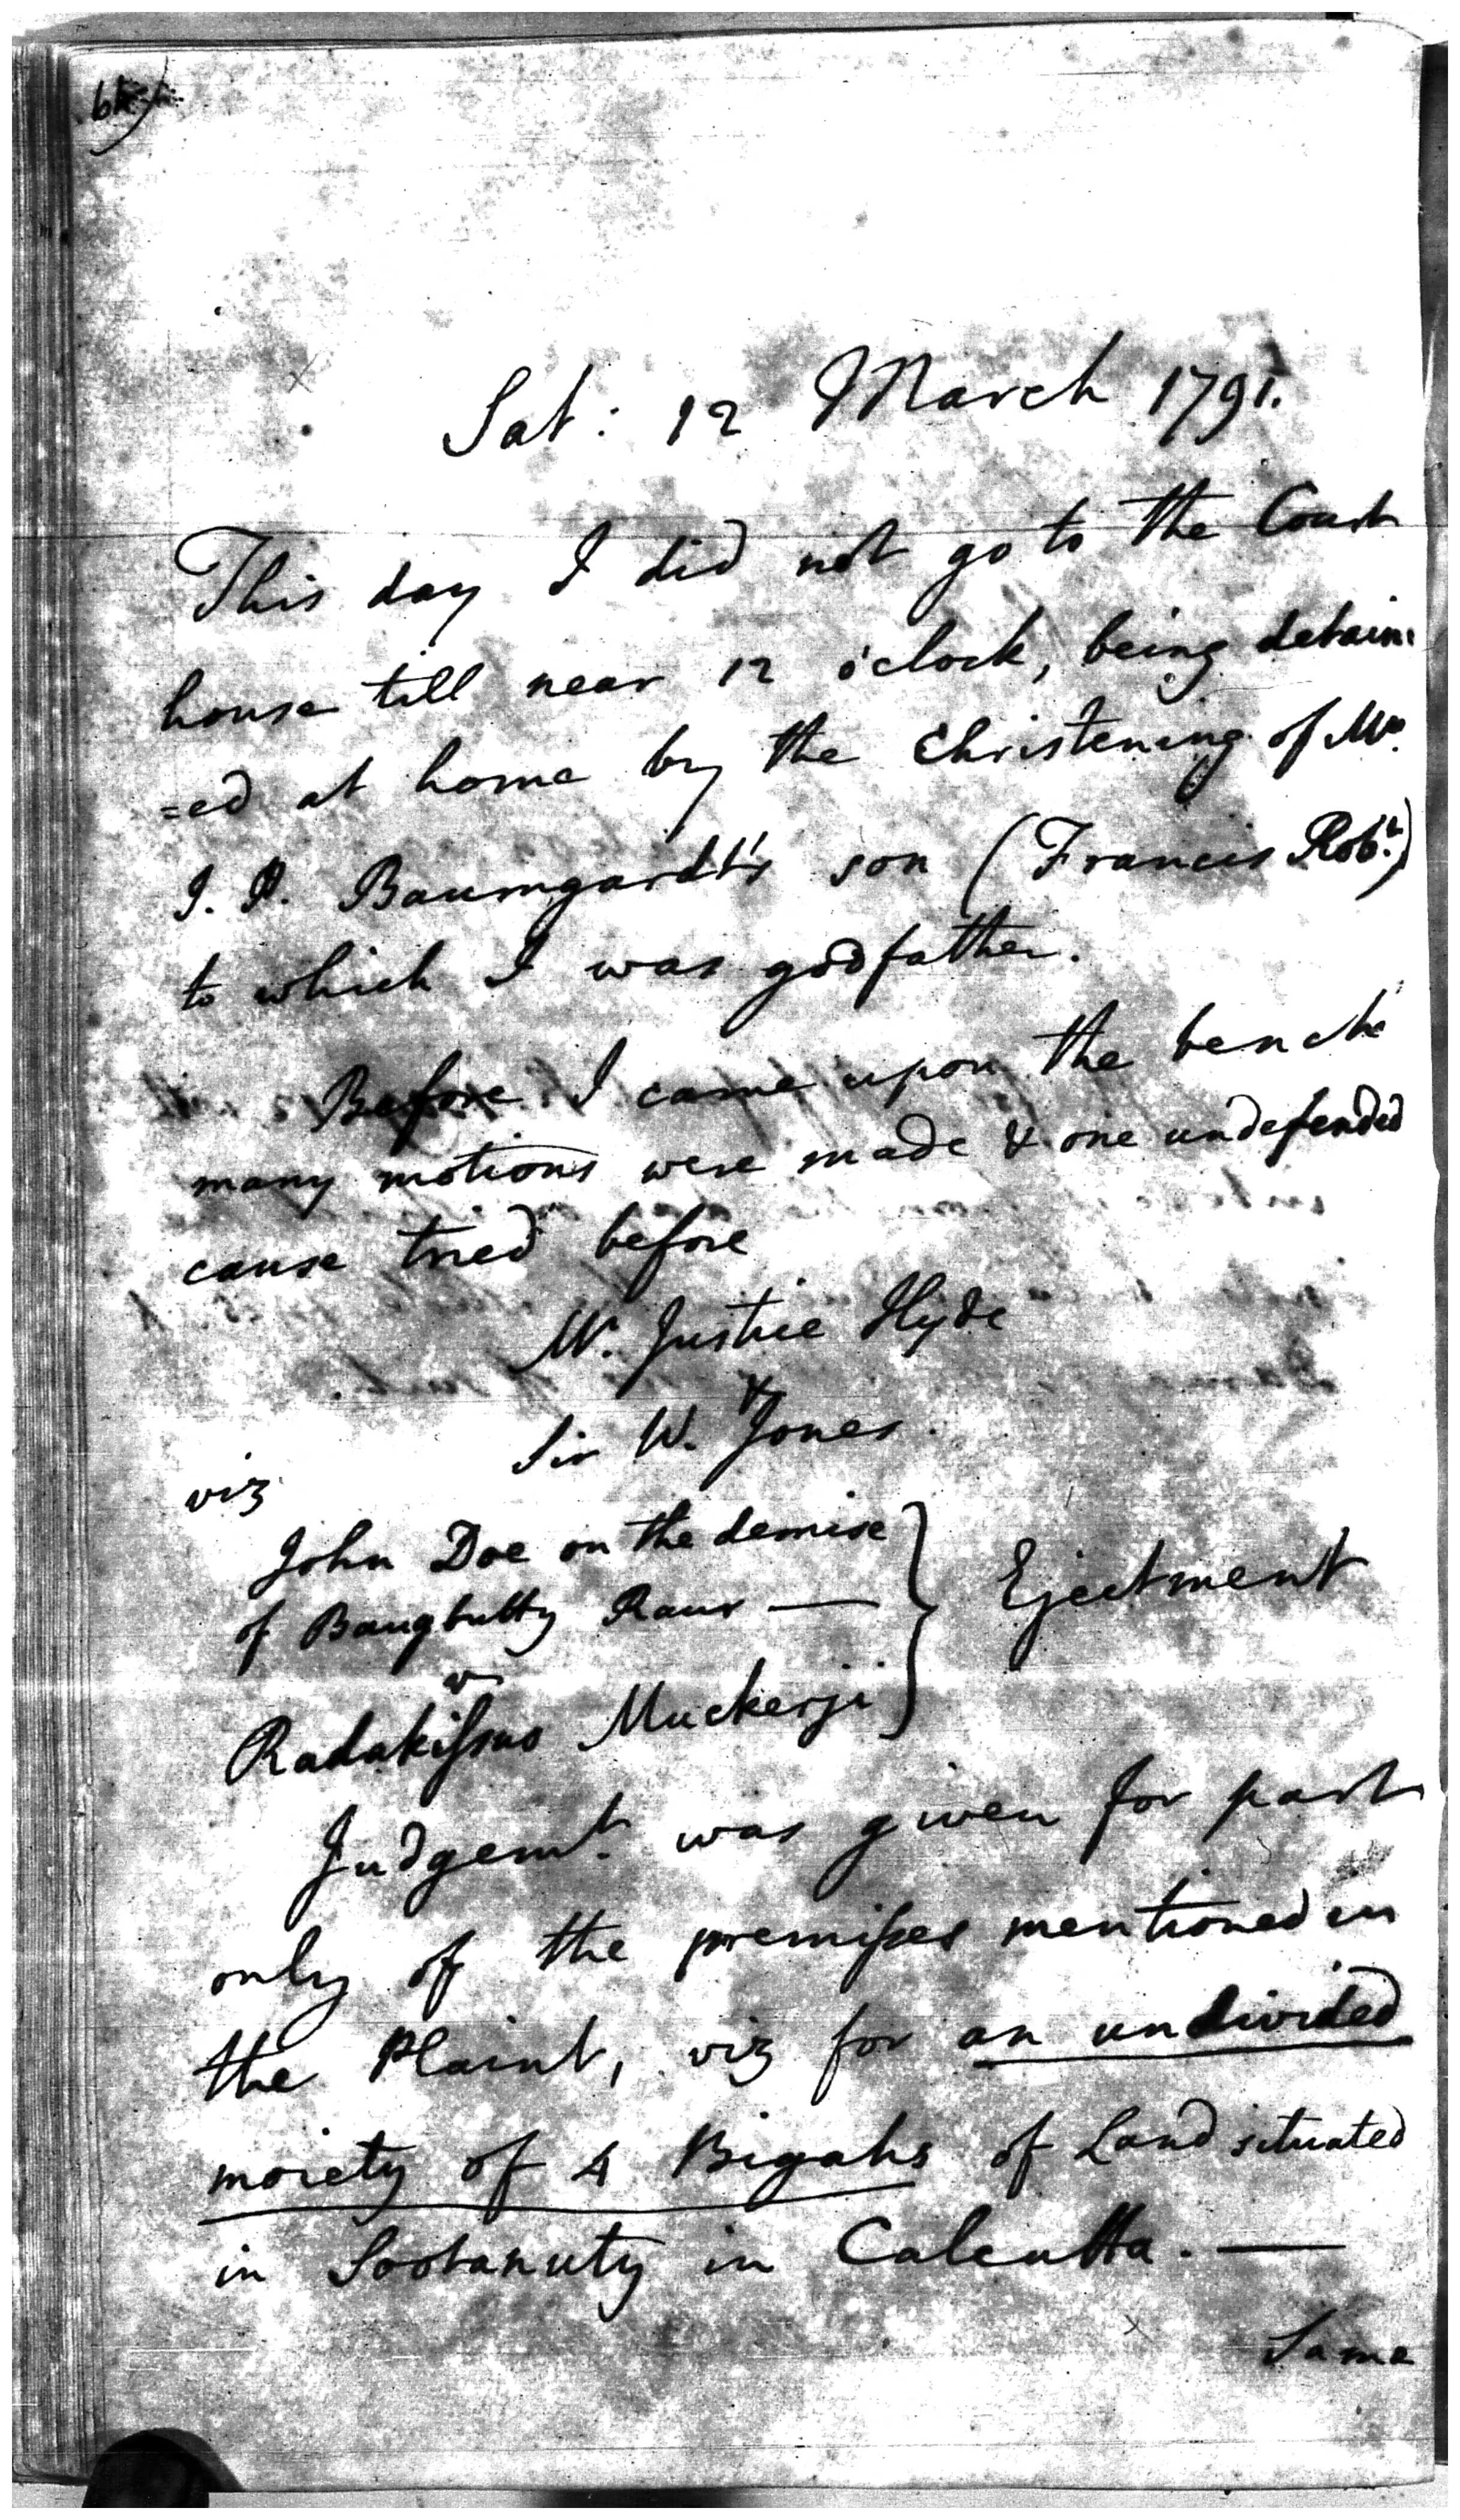 Sat: 12 March 1791.
This day I did not go to the Court
house till near 12 o'clock, being detain
=ed at home by the Christening of Mr.
J. P. Baumgardt's son (Francis Robt.)
to which I was godfather.
Before I came upon the bench
many motions were made & one undefended
cause tried before
Mr. Justice Hyde
&
Sir W. Jones.
viz
John Doe on the demise
of Baugbutty Raur —
v
Radakissno Muckerji
Ejectment
Judgemt. was given for part
only of the premisses mentioned in
the Plaint, viz for an undivided
moiety of 4 Bigahs of Land situated
in Sootanuty in Calcutta. —
Same